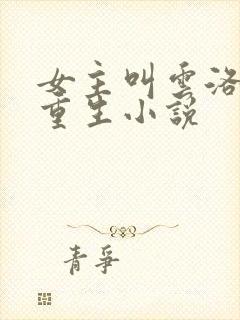 女主叫雲洛
重生小說
青爭